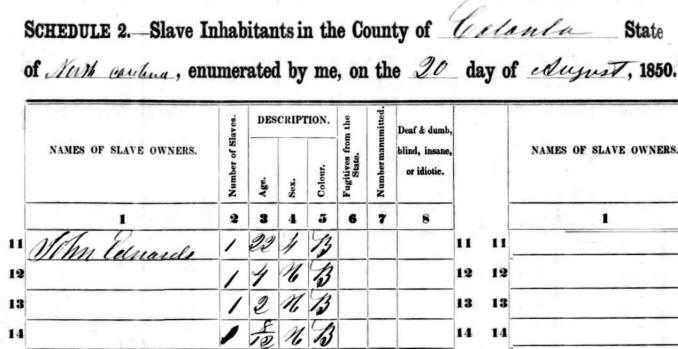 SCHEDULE 2.—Slave Inhabitants in the County of Catawba State
of North Carolina, enumerated by me, on the 20 day of August, 1850.
NAMES OF SLAVE OWNERS. Number of Slaves. DESCRIPTION. Age. Sex. Colour. Fugitives from the State. Number manumitted. Deaf & dumb, blind, insane, or idiotic. NAMES OF SLAVE OWNERS.
1 2 3 4 5 6 7 8 1
11 John Edwards 1 22 B 11 11
12 1 4 B 12 12
13 1 2 B 13 13
14 1 8/12 B 14 14